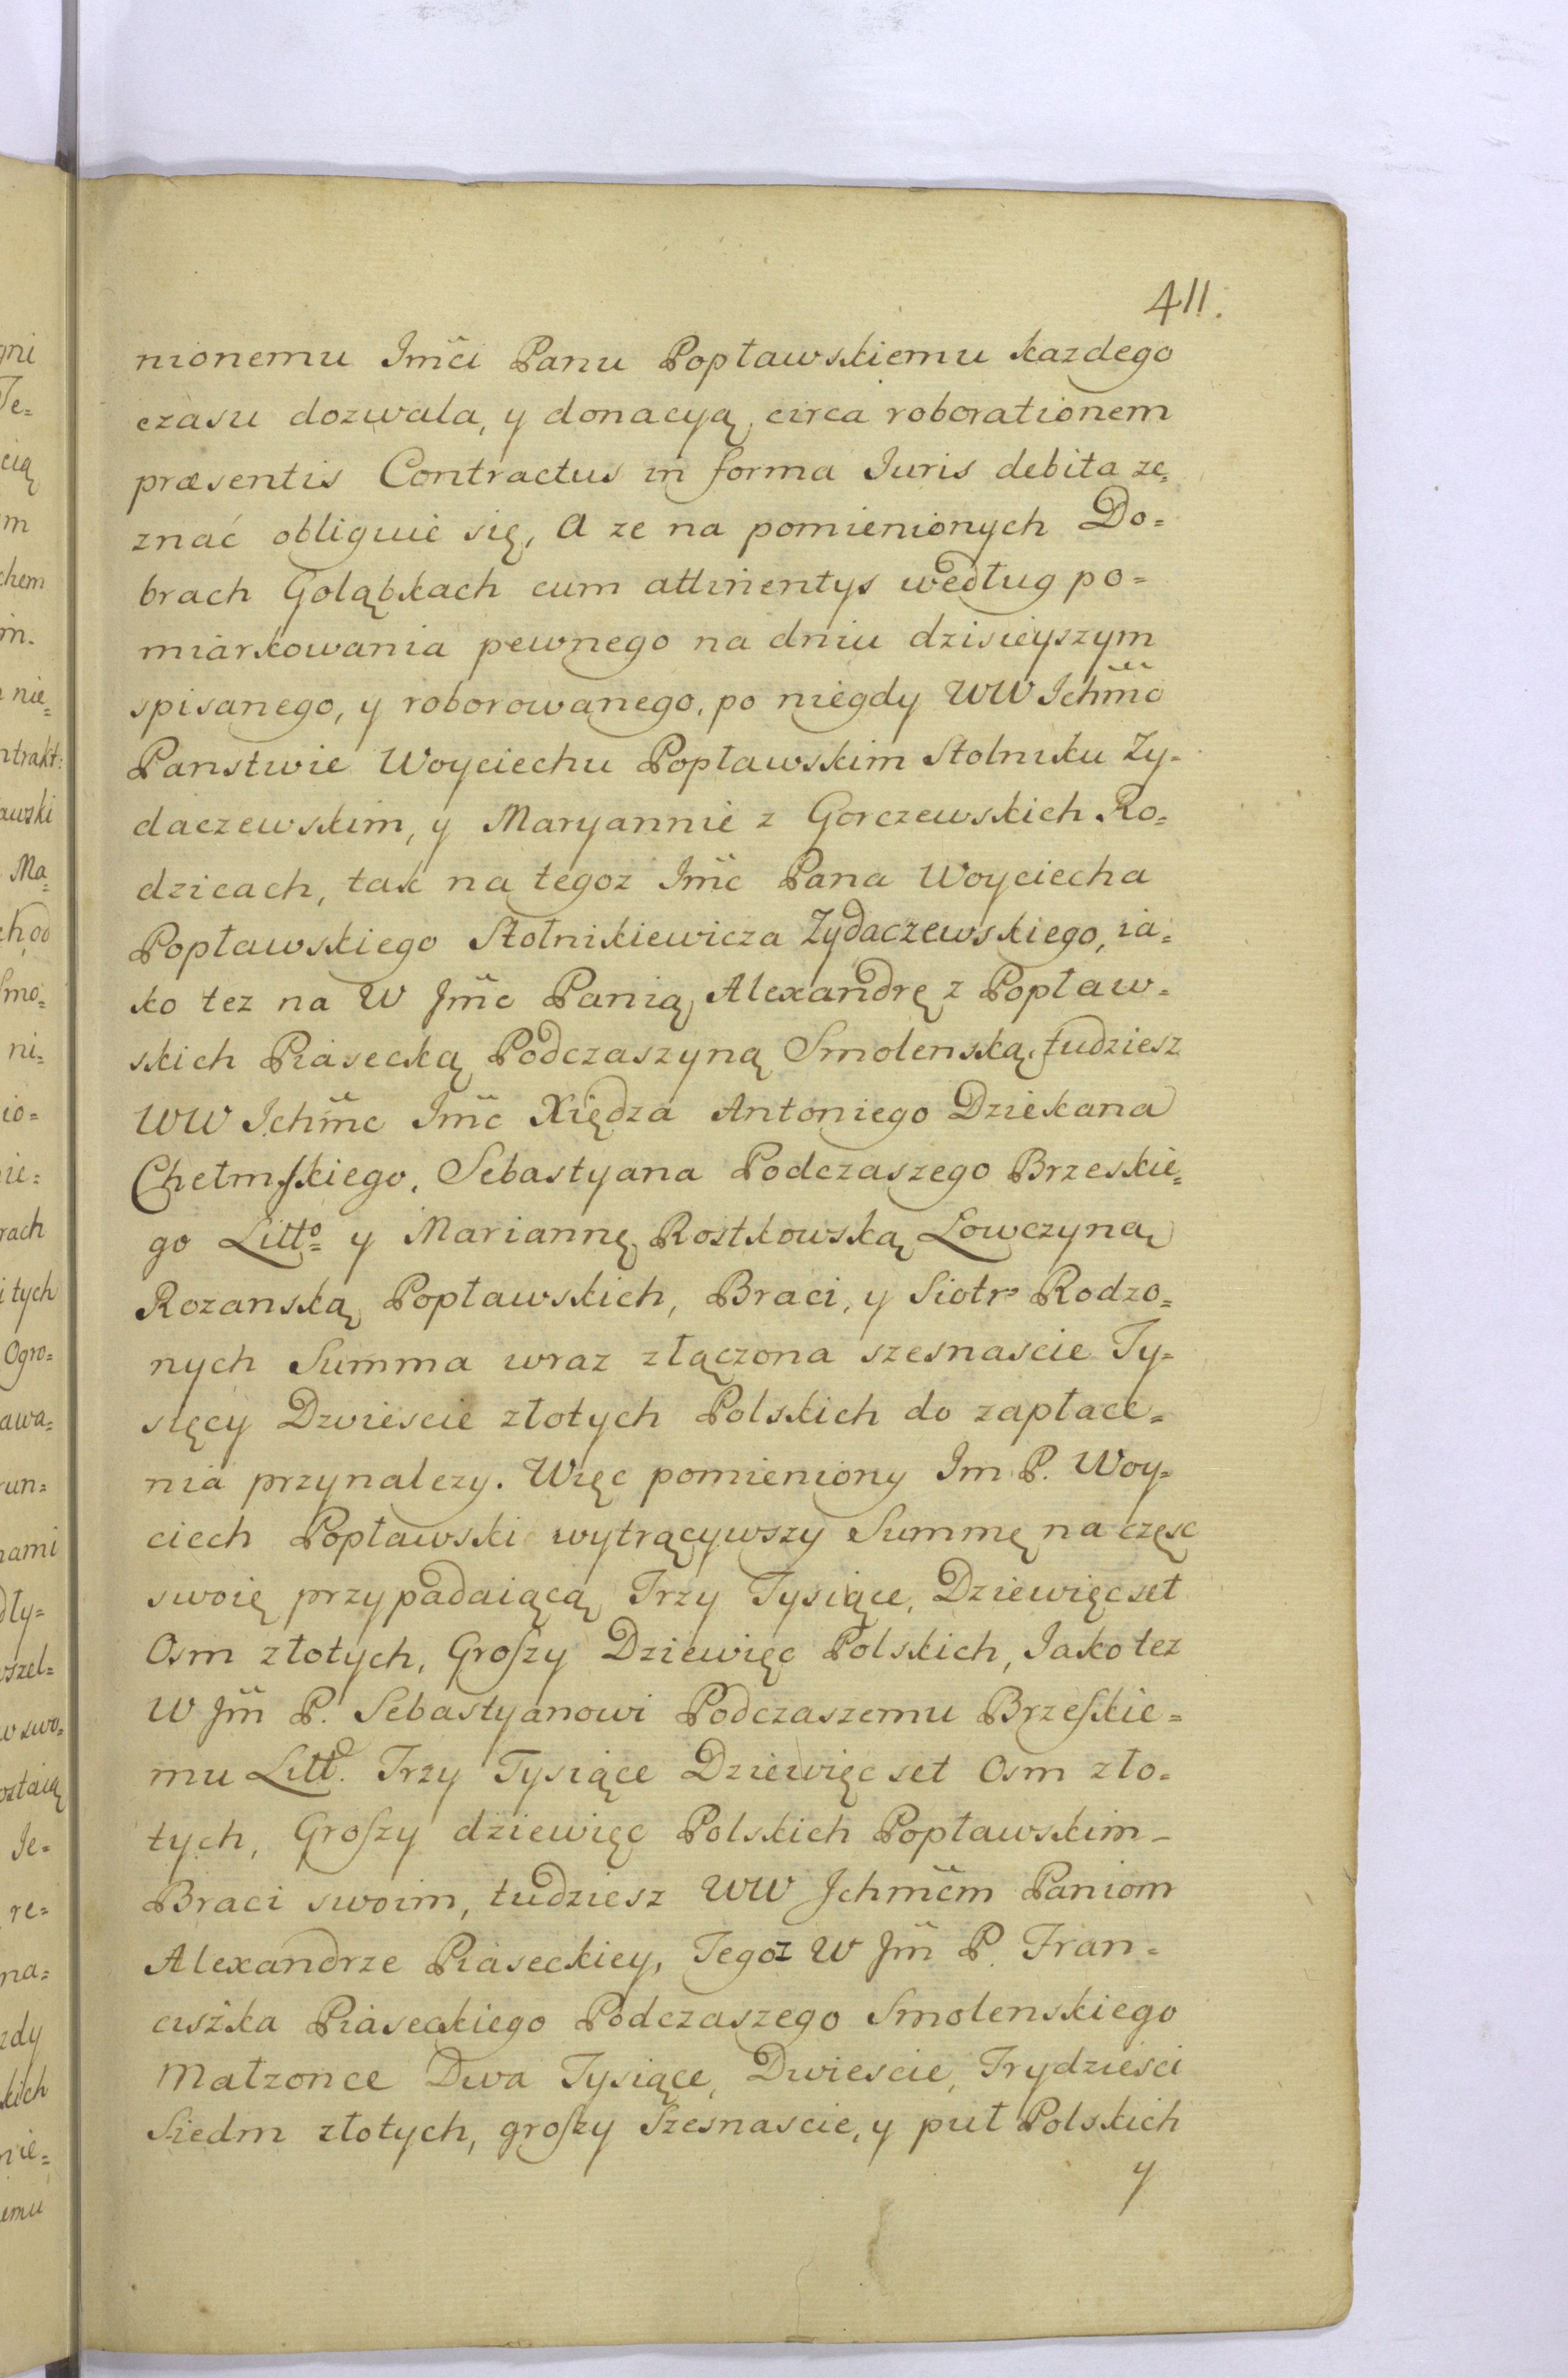 411.
nionemu Jmci Panu Popławskiemu kazdego
czasu dozwala, y donacyą circa roborationem
præsentis Contractus in forma Juris debita ze=
znać obliguie się, A ze na pomienionych Do=
brach Goląbkach cum attinentys według po=
miarkowania pewnego na dniu dzisieyszym
spisanego, y roborowanego, po niegdy WW Ichmc
Panstwie Woyciechu Popławskim Stolniku Zy=
daczewskim, y Maryannie z Gorczewskich Ro=
dzicach, tak na tegoz Jmc Pana Woyciecha
Popławskiego Stolnikiewicza Zydaczewskiego, ia=
ko tez na W Jmc Panią Alexandrę z Popław=
skich Piasecką Podczaszyną Smolenską, tudziesz
WW Ichmc Jmc Xiędza Antoniego Dziekana
Chełmskiego, Sebastyana Podczaszego Brzeskie=
go Litto= y Mariannę Rostkowską Łowczyną
Rozanską Popławskich, Braci, y Siotr Rodzo=
nych Summa wraz złączona szesnascie Ty=
sięcy Dwiescie złotych Polskich do zapłace=
nia przynalezy. Więc pomieniony Jm P. Woy=
ciech Popławski wytrącywszy Summę na częsc
swoię przypadaiącą Trzy Tysiące, Dziewięcset
Osm złotych, Groszy Dziewięc Polskich, Jako tez
W Jm P. Sebastyanowi Podczaszemu Brzeskie=
mu Litto. Trzy Tysiące Dziewięc set Osm zło=
tych, Groszy dziewięc Polskich Popławskim-
Braci swoim, tudziesz WW Jchmcm Paniom
Alexandrze Piaseckiey, Tegoz W Jm P. Fran=
ciszka Piaseckiego Podczaszego Smolenskiego
Małzonce Dwa Tysiące, Dwiescie, Trydziesci
Siedm złotych, groszy Szesnascie, y puł Polskich
y